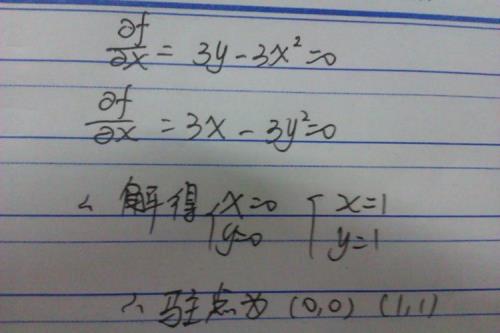 ∂f/∂x = 3y - 3x² = 0
∂f/∂x = 3x - 3y² = 0
∴ 解得 { x=0 y=0 { x=1 y=1
∴ 驻点为 (0,0) (1,1)